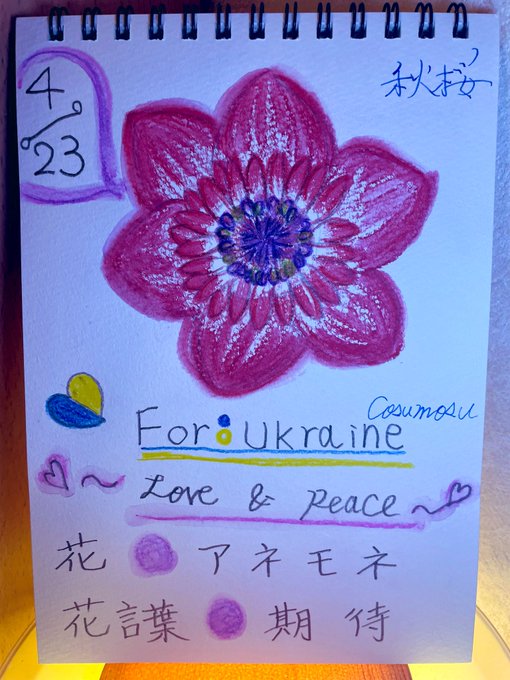 4/23
秋桜
Cosumosu
For:Ukraine
♡~Love & Peace~♡
花●アネモネ
花言葉●期待